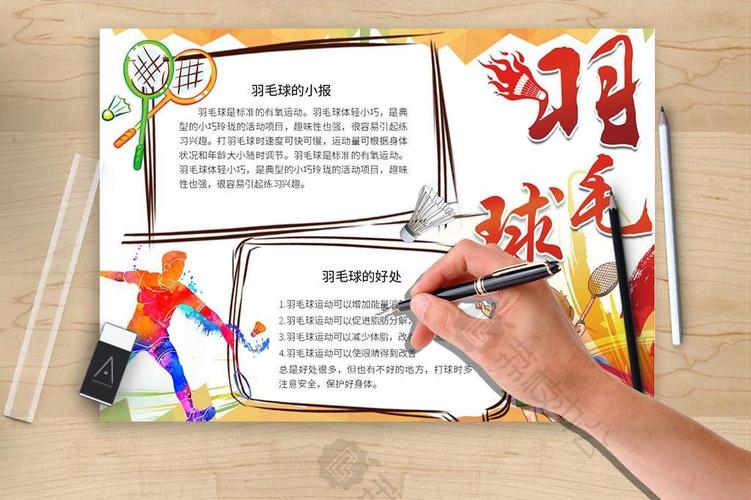 羽毛球
羽毛球的小报
羽毛球是标准的有氧运动。羽毛球体轻小巧，是典
型的小巧玲珑的活动项目，趣味性也强，很容易引起练
习兴趣。打羽毛球时速度可快可慢，运动量可根据身体
状况和年龄大小随时调节。羽毛球是标准的有氧运动。
羽毛球体轻小巧，是典型的小巧玲珑的活动项目，趣味
性也强，很容易引起练习兴趣。
羽毛球的好处
1.羽毛球运动可以增加能量消
2.羽毛球运动可以促进脂肪分解，
3.羽毛球运动可以减少体脂，改
4.羽毛球运动可以使眼睛得到改善
总是好处很多，但也有不好的地方，打球时多
注意安全，保护好身体。
A